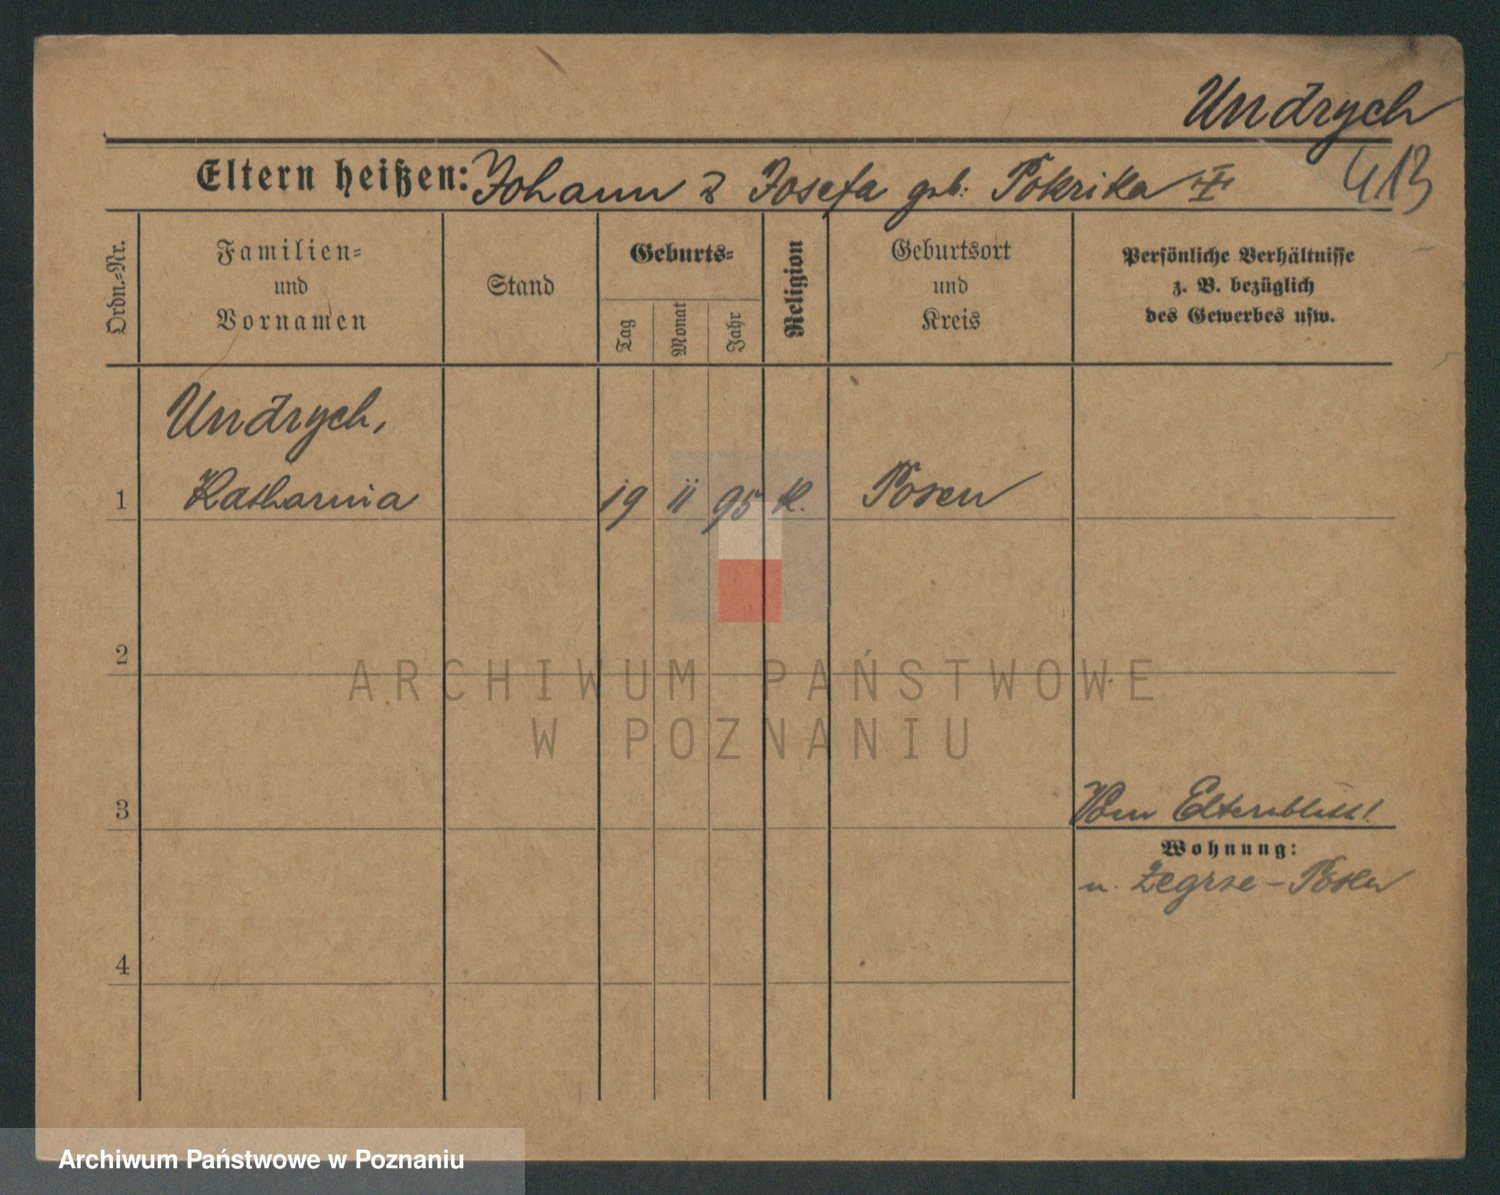 Undrych
413
Eltern heißen: Johann & Josefa geb. Pokrika
Ordn.-Nr.
Familien-
und
Vornamen
Stand
Geburts-
Tag
Monat
Jahr
Religion
Geburtsort
und
Kreis
Persönliche Verhältnisse
z. B. bezüglich
des Gewerbes usw.
Undrych,
1 Katharina 19 11 95 K. Posen
2
ARCHIWUM PAŃSTWOWE
W POZNANIU
3 Vom Elternblatt!
Wohnung:
n. Zegrze - Posen
4
Archiwum Państwowe w Poznaniu